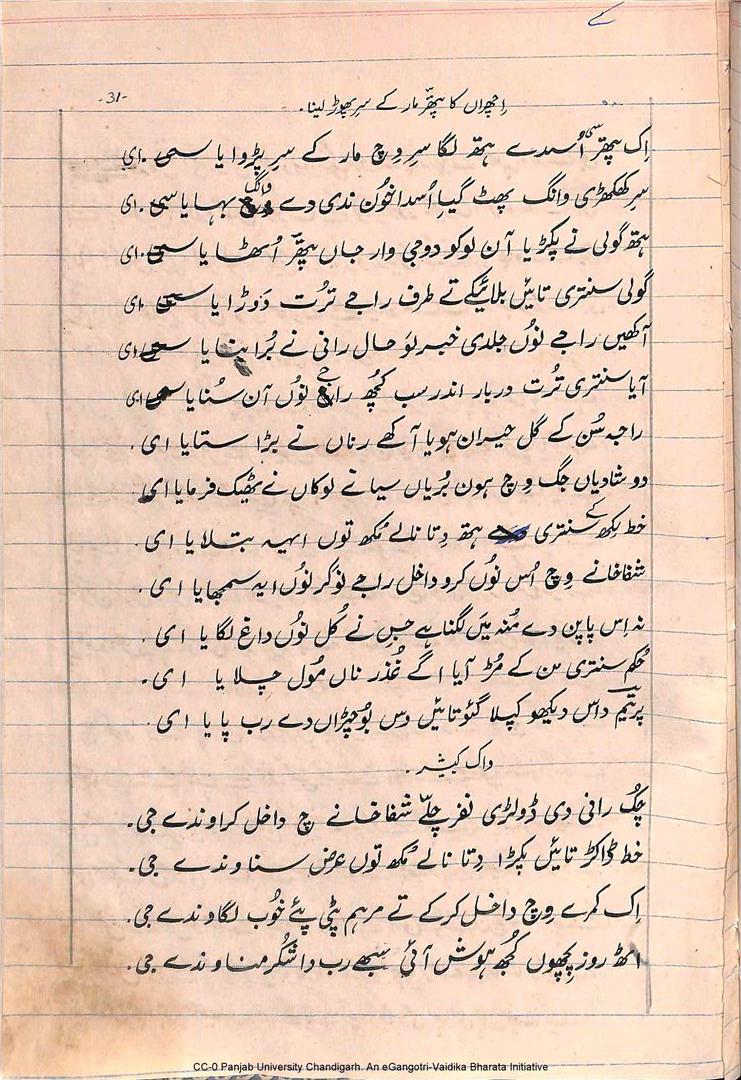 کے
-31-
اچھراں کا پتھر مار کے سر پھوڑ لینا۔
اِک پتھر سی اُسدے ہتھ لگا سرِ وِچ مار کے سرِ پڑوایا سی ای
سرِ کھکھڑی وانگ پھٹ گیا اُسدا خُون ندی دے وانگ بہایا سی ای
ہتھ گولی نے پکڑیا آن لوکو دوجی وار جاں پتھر اُٹھایا سی ای
گولی سنتری تائیں بلائیکے تے طرف راجے ترُت دَوڑایا سی ای
آکھیں راجے نوُں جلدی خبر لَو حال رانی نے بُرا بنایا سی ای
آیا سنتری تُرت دربار اندر سب کُچھ راجے نوُں آن سُنایا سی ای
راجہ سُن کے گل حیران ہویا آکھے رناں نے بڑا ستایا ای۔
دو شادیاں جگ وِچ ہون بُریاں سیانے لوکاں نے ٹھیک فرمایا ای
خط لِکھ کے سنتری ہتھ دِتا نالے مُکھ توں ایہہ بتلایا ای۔
شفاخانے وِچ اُس نوُں کرو داخل راجے نوکر نوُں ایہ سمجھایا ای۔
نہ اِس پاپن دے مُنہ میَں لگنا ہے جِس نے کُل نوُں داغ لگایا ای۔
حُکم سنتری من کے مُڑ آیا اگے عُذر ناں مُول چلایا ای۔
پریتم داس دیکھو کپلا گئو تائیں وس بوُچڑاں دے رب پایا ای۔
واک کبیشر۔
چُک رانی دی ڈولڑی نفر چلّے شفاخانے چ داخل کراوندے جی۔
خط ڈاکٹر تائیں پکڑا دِتا نالے مُکھ توں عرض سناوندے جی۔
اِک کمرے وِچ داخل کرکے تے مرہم پٹی پئے خُوب لگاوندے جی۔
اٹھ روز پِچھوں کُجھ ہوش آئی سبھے رب دا شُکر مناوندے جی۔
CC-0 Panjab University Chandigarh. An eGangotri-Vaidika Bharata Initiative